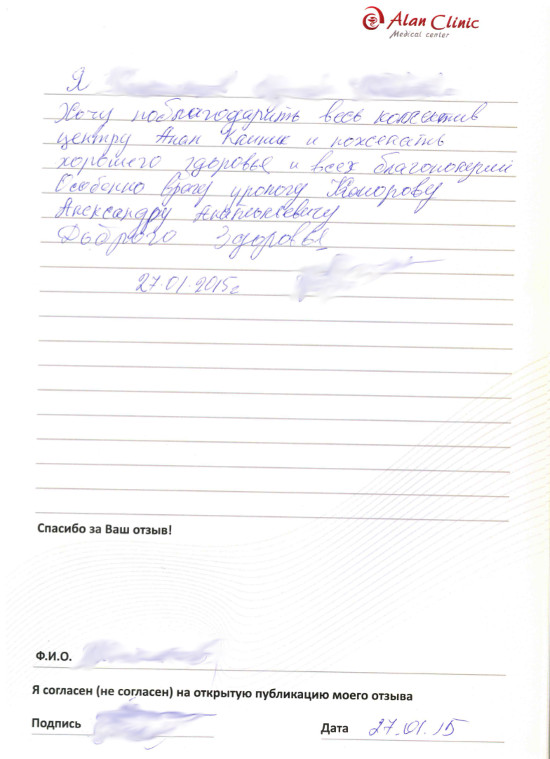 Alan Clinic
Medical center
Я
Хочу поблагодарить весь коллектив
центру Алан Клиник и пожелать
хорошего здоровья и всех благополучий
Особенно врачу урологу
Александру Анатольевичу
Доброго Здоровья
27.01.2015г
Спасибо за Ваш отзыв!
Ф.И.О.
Я согласен (не согласен) на открытую публикацию моего отзыва
Подпись
Дата 27.01.15